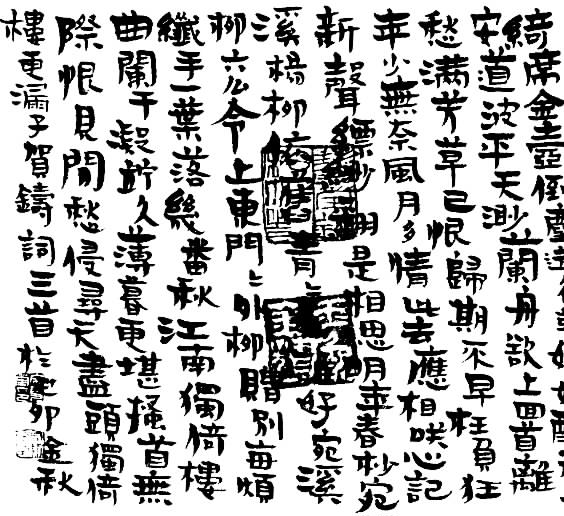 綺席金壺倒
安道波平天渺蘭舟欲上回首離
愁滿芳草已恨歸期不早枉負狂
年少無奈風月多情此去應相咲心記
新聲縹緲翻是相思明年春杪宛
溪楊柳依舊青好宛溪
柳六么令上東門〻外柳贈別每煩
纖手一葉落幾番秋江南獨倚樓
曲闌干凝竚久薄暮更堪搔首無
際恨見閒愁侵尋天盡頭獨倚
樓更漏子賀鑄詞三首於卯金秋